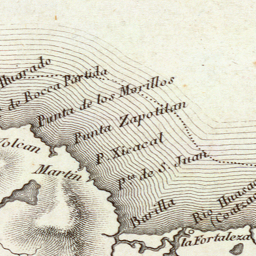 Alvarado
de Rocca Partida
Punta de los Morillos
Punta Zapotitan
P. Xicacal
Pta de S. Juan
Barilla
Rio Huasa
la Fortaleza
Volcan
Martin